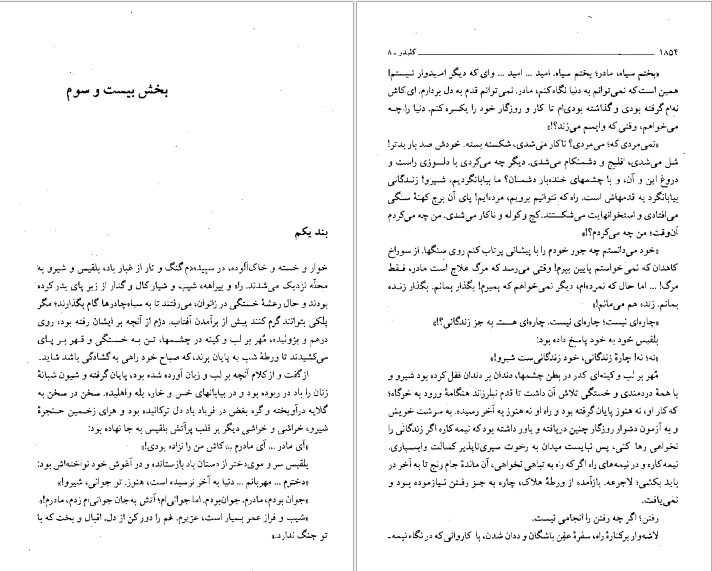 بخش بیست و سوم
بند یکم
خوار و خسته و خاک‌آلوده، در سپیده‌دم گنگ و تار از غبار باد، بلقیس و شیرو به
محلّه نزدیک می‌شدند. راه و بیراهه، شیب و شیار کال و گدار از زیر پای بدر کرده
بودند و حال رعشهٔ خستگی در زانوان، می‌رفتند تا به سیاه‌چادرها گام بگذارند؛ مگر
پلکی بتوانند گرم کنند پیش از برآمدن آفتاب. دژم از آنچه بر ایشان رفته بود، روی
درهم و پژولیده، مُهر بر لب و کینه در چشمها، تن به خستگی و قهر بر پای
می‌کشیدند تا ورطهٔ شب به پایان برند، که صباح خود راهی به گشادگی باشد شاید.
ازگفت و از کلام آنچه بر لب و زبان آورده شده بود، پایان گرفته و شیون شبانهٔ
زنان را باد در ربوده بود و در بیابانهای خس و خار، یله واهلیده. سخن در سخن به
گلایه درآویخته و گره بغض در غرباد باد ترکانیده بود و های زخمین حنجرهٔ
شیرو، خراشی و خراشی دیگر بر قلب پرآتش بلقیس به جا نهاده بود:
«آی مادر ... آی مادرم ... کاش من را نزاده بودی!»
بلقیس سر و موی‌دختر از دستان باد بازستانده و در آغوش خود نواخته‌اش بود:
«دخترم ... مهربانم ... دنیا به آخر نرسیده است، هنوز. تو جوانی، شیرو!»
«جوان بودم، مادرم. جوان‌بودم. اما جوانی‌ام؛ آتش به‌جان جوانی‌ام زدم، مادرم!»
«شیب و فراز عمر بسیار است، عزیزم. غم را دورکن از دل. اقبال و بخت که با
تو جنگ ندارد.»
۱۸۵۴ کلیدر ـ ۸
«بختم سیاه، مادر؛ بختم سیاه. امید ... امید ... وای که دیگر امیدوار نیستم!
همین است‌که نمی‌توانم به دنیا نگاه‌کنم، مادر. نمی‌توانم قدم به دل بردارم. ای‌کاش
نه‌ام گرفته بودی و گذاشته بودی‌ام تا کار و روزگار خود را یکسره کنم. دنیا را چه
می‌خواهم، وقتی که واپسم می‌زند؟!»
«نمی‌مردی که؛ می‌مردی؟ ناکار می‌شدی، شکسته بسته. خودش صد بار بدتر!
شل می‌شدی، افلیج و دشمنکام می‌شدی. دیگر چه می‌کردی با دلسوزی راست و
دروغ این و آن، و با چشمهای خنده‌بار دشمنان؟ ما بیابانگردیم، شیرو! زندگانی
بیابانگرد به قدمهاش است. راه که نتوانیم برویم، مرده‌ایم! پای آن برج کهنهٔ سنگی
می‌افتادی و استخوانهایت می‌شکستند. کج و کوله و ناکار می‌شدی. من چه می‌کردم
آن‌وقت؛ من چه می‌کردم؟!»
«خود می‌دانستم چه جور خودم را با پیشانی پرتاب کنم روی سنگها. از سوراخ
کاهدان که نمی‌خواستم پایین بپرم! وقتی می‌رسد که مرگ علاج است مادر، فقط
مرگ! ... اما حال که نمرده‌ام، دیگر نمی‌خواهم که بمیرم! بگذار بمانم. بگذار زنده
بمانم. زنده هم می‌مانم!»
«چاره‌ای نیست؛ چاره‌ای نیست. چاره‌ای هست به جز زندگانی؟!»
بلقیس خود به خود پاسخ داده بود:
«نه؛ نه! چارهٔ زندگانی، خود زندگانی‌ست شیرو!»
مُهر بر لب و کینه‌ای کدر در بطن چشمها، دندان بر دندان قفل کرده بود شیرو و
با همهٔ دردمندی و خستگی تلاش آن داشت تا قدم نیلرزند هنگامهٔ ورود به خرگاه؛
که کار او، نه هنوز پایان گرفته بود و راه او نه هنوز به آخر رسیده. به سرشت خویش
و به آزمون دشوار روزگار چنین دریافته و باور داشته بود که نیمه‌کاره اگر زندگانی را
نخواهی رها کنی، پس نبایست میدان به رخوت سیری‌ناپذیر کسالت وابسپاری.
نیمه‌کاره و در نیمه‌های راه اگرکه راه به تباهی نخواهی، آن ماندهٔ جام رنج تا به آخر در
باید بکشی؛ لاجرعه. بازآمده از ورطهٔ هلاک، چاره به جز رفتن نیازموده بود و
نمی‌یافت.
رفتن؛ اگر چه رفتن را انجامی نیست.
لاشه‌وار برکنارهٔ راه، سفرهٔ عفِن باشگان و ددان شدن، یا کاروانی‌که در نگاه نیمه‌ـ